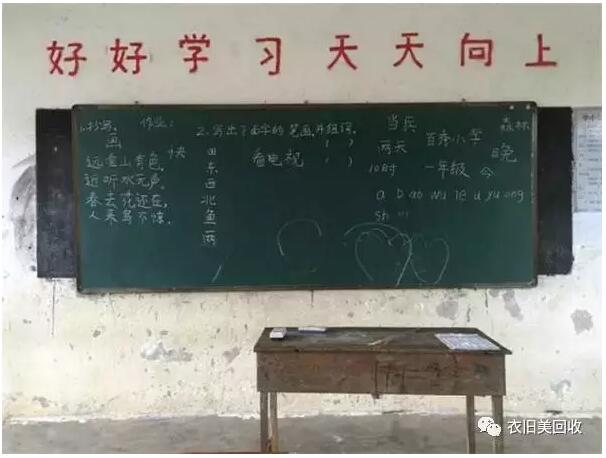 好好学习天天向上
作业：
1.抄写。
画
远看山有色，
近听水无声。
春去花还在，
人来鸟不惊。
快
2.写出下面字的笔画,并组词。
田
东
西
北
鱼
两
看电视
( )
( )
当兵
两天
10时
百秀小学
一年级
森林
晚
今
a b ao wu ie u yu ong
sh
衣旧美回收